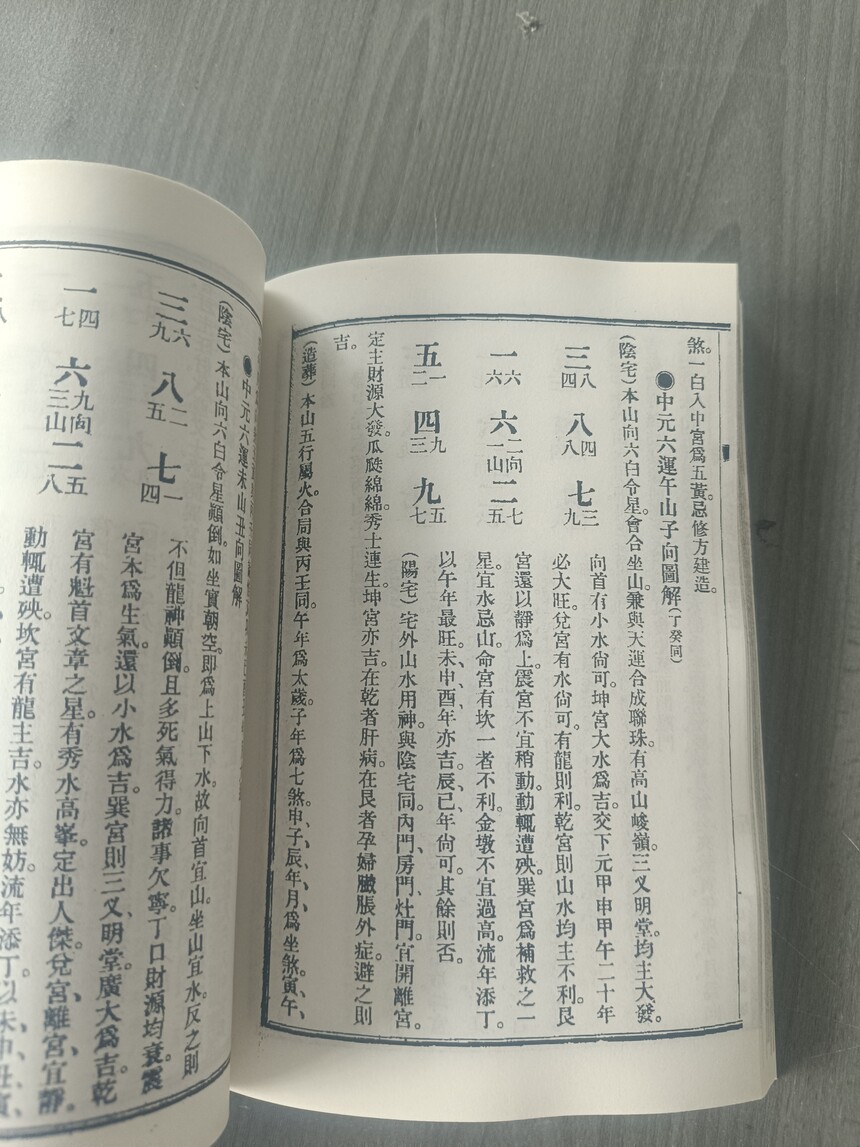 煞。一白入中宮爲五黃。忌修方建造。
●中元六運午山子向圖解(丁癸同)
(陰宅)本山向六白令星。會合坐山。兼與天運合成聯珠。有高山峻嶺。三叉明堂。均主大發。
向首有小水尙可。坤宮大水爲吉。交下元甲申甲午二十年
必大旺。兌宮有水尙可。有龍則利。乾宮則山水均主不利。艮
宮還以靜爲上。震宮不宜稍動。動輒遭殃。巽宮爲補救之一
星。宜水忌山。命宮有坎一者不利。金墩不宜過高。流年添丁。
以午年最旺。未、申、酉年亦吉。辰、巳年尙可。其餘則否。
(陽宅)宅外山水用神。與陰宅同。內門、房門、灶門。宜開離宮。
三 八四
八 四八
七 三九
一 六六
六 二向一山
二 七五
五 一二
四 九三
九 五七
定主財源大發。瓜瓞綿綿。秀士連生。坤宮亦吉。在乾者肝病。在艮者孕婦臟脹外症。避之則
吉。
(造葬)本山五行屬火。合局與丙壬同。午年爲太歲。子年爲七煞。申、子、辰、年、月、爲坐煞。寅、午、
●中元六運未山丑向圖解
(陰宅)本山向六白令星顚倒。如坐實朝空。卽爲上山下水。故向首宜山。坐山宜水。反之則
不但龍神顚倒。且多死氣得力。諸事欠寧。丁口財源均衰。震
宮本爲生氣。還以小水爲吉。巽宮則三叉、明堂。廣大爲吉。乾
宮有魁首文章之星。有秀水高峯。定出人傑。兌宮、離宮宜靜。
動輒遭殃。坎宮有龍主吉。水亦無妨。流年添丁。以未、申、丑、寅、
三 六九
八 二五
七 一四
一 四七
六 九向三山
二 五八